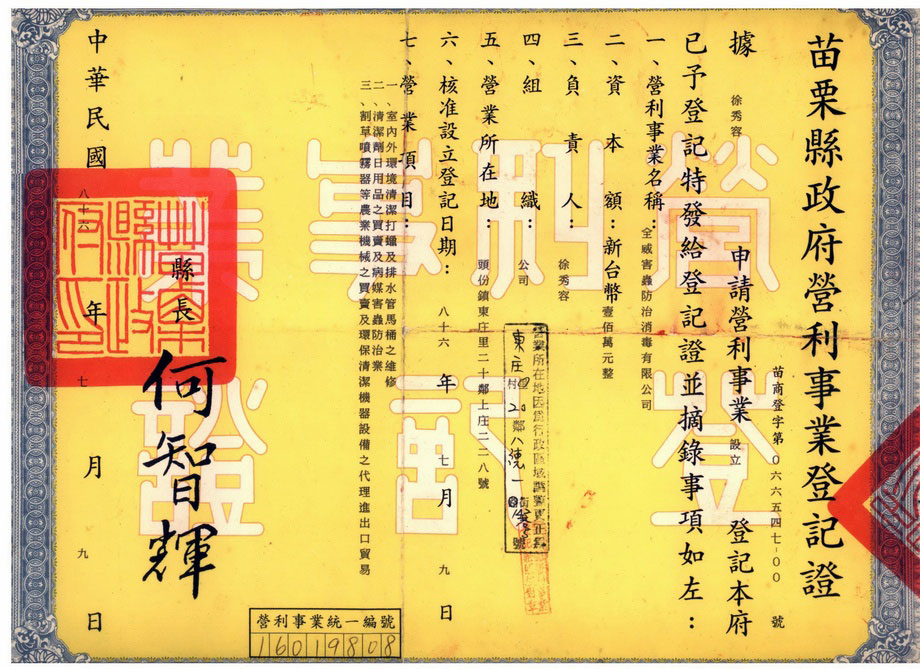 苗栗縣政府營利事業登記證
苗商登字第066547-00號
據徐秀容申請營利事業設立登記本府
已予登記特發給登記證並摘錄事項如左：
一、營利事業名稱：全威害蟲防治消毒有限公司
二、資本額：新台幣壹佰萬元整
三、負責人：徐秀容
四、組織：公司
五、營業所在地：頭份鎮東庄里二十鄰上庄二二八號
營業所在地因為行政區域調整更正為
東庄村20鄰八德一街
號
六、核准設立登記日期：八十六年七月九日
七、營業項目：
一、室內外環境清潔打蠟及排水管馬桶之維修
二、清潔劑日用品之買賣及病媒害蟲防治業
三、割草噴霧器等農業機械之買賣及環保清潔機器設備之代理進出口貿易
縣長
何智輝
苗栗縣政府印
中華民國八十六年七月九日
營利事業登記證
營利事業統一編號
16019808